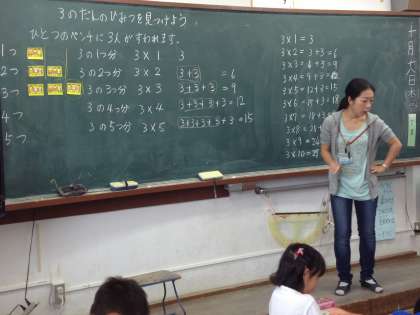 3のだんのひみつを見つけよう
ひとつのベンチに3人がすわれます。
1つ 3の1つ分 3×1 3
2つ 3の2つ分 3×2 3+3 =6
3つ 3の3つ分 3×3 3+3+3 =9
4つ 3の4つ分 3×4 3+3+3+3 =12
5つ 3の5つ分 3×5 3+3+3+3+3 =15
3×1=3
3×2=3+3=6
3×3=6+3=9
3×4=9+3=12
3×5=12+3=15
3×6=15+3=18
3×7=18+3
3×8=21+3
3×9=24
3×10=